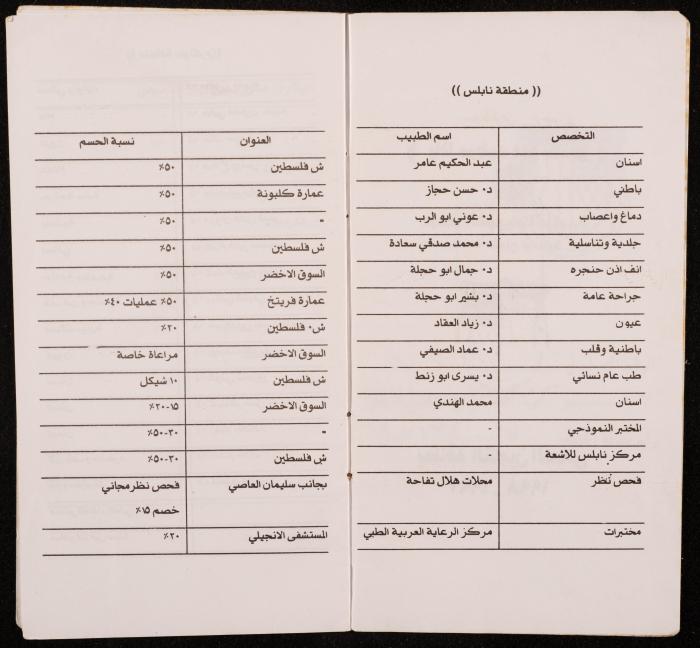 (( منطقة نابلس ))
التخصص اسم الطبيب العنوان نسبة الحسم
اسنان عبد الحكيم عامر ش فلسطين ٥٠٪
باطني د. حسن حجاز عمارة كلبونة ٥٠٪
دماغ واعصاب د. عوني ابو الرب = ٥٠٪
جلدية وتناسلية د. محمد صدقي سعادة ش فلسطين ٥٠٪
انف اذن حنجره د. جمال ابو حجلة السوق الاخضر ٥٠٪
جراحة عامة د. بشير ابو حجلة عمارة فريتخ ٥٠٪ عمليات ٤٠٪
عيون د. زياد العقاد ش. فلسطين ٢٠٪
باطنية وقلب د. عماد الصيفي السوق الاخضر مراعاة خاصة
طب عام نسائي د. يسرى ابو زنط ش فلسطين ١٠ شيكل
اسنان محمد الهندي السوق الاخضر ١٥-٢٠٪
المختبر النموذجي - = ٣٠-٥٠٪
مركز نابلس للاشعة ش فلسطين ٣٠-٥٠٪
فحص نظر محلات هلال تفاحة بجانب سليمان العاصي فحص نظر مجاني
خصم ١٥٪
مختبرات مركز الرعاية العربية الطبي المستشفى الانجيلي ٢٠٪